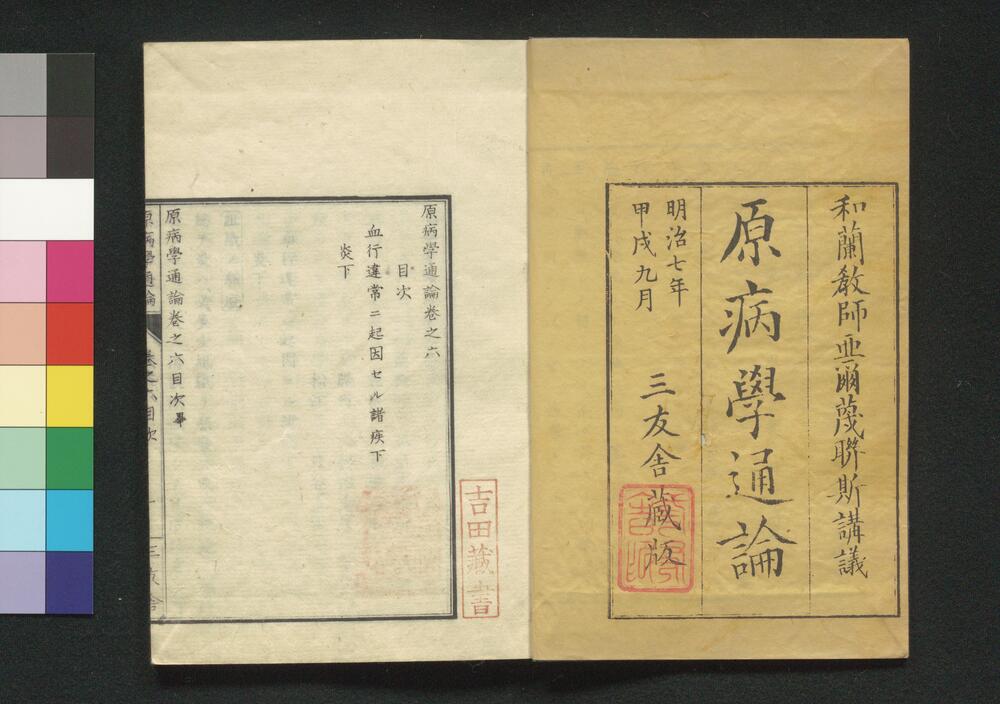 和蘭敎師亞爾蔑聯斯講議
原病學通論
明治七年
甲戌九月
三友舍藏版
原病學通論卷之六
目次
血行違常ニ起因セル諸疾下
炎下
原病學通論卷之六目次畢
原病學通論
卷之六目次
一
三友舍
吉田藏書